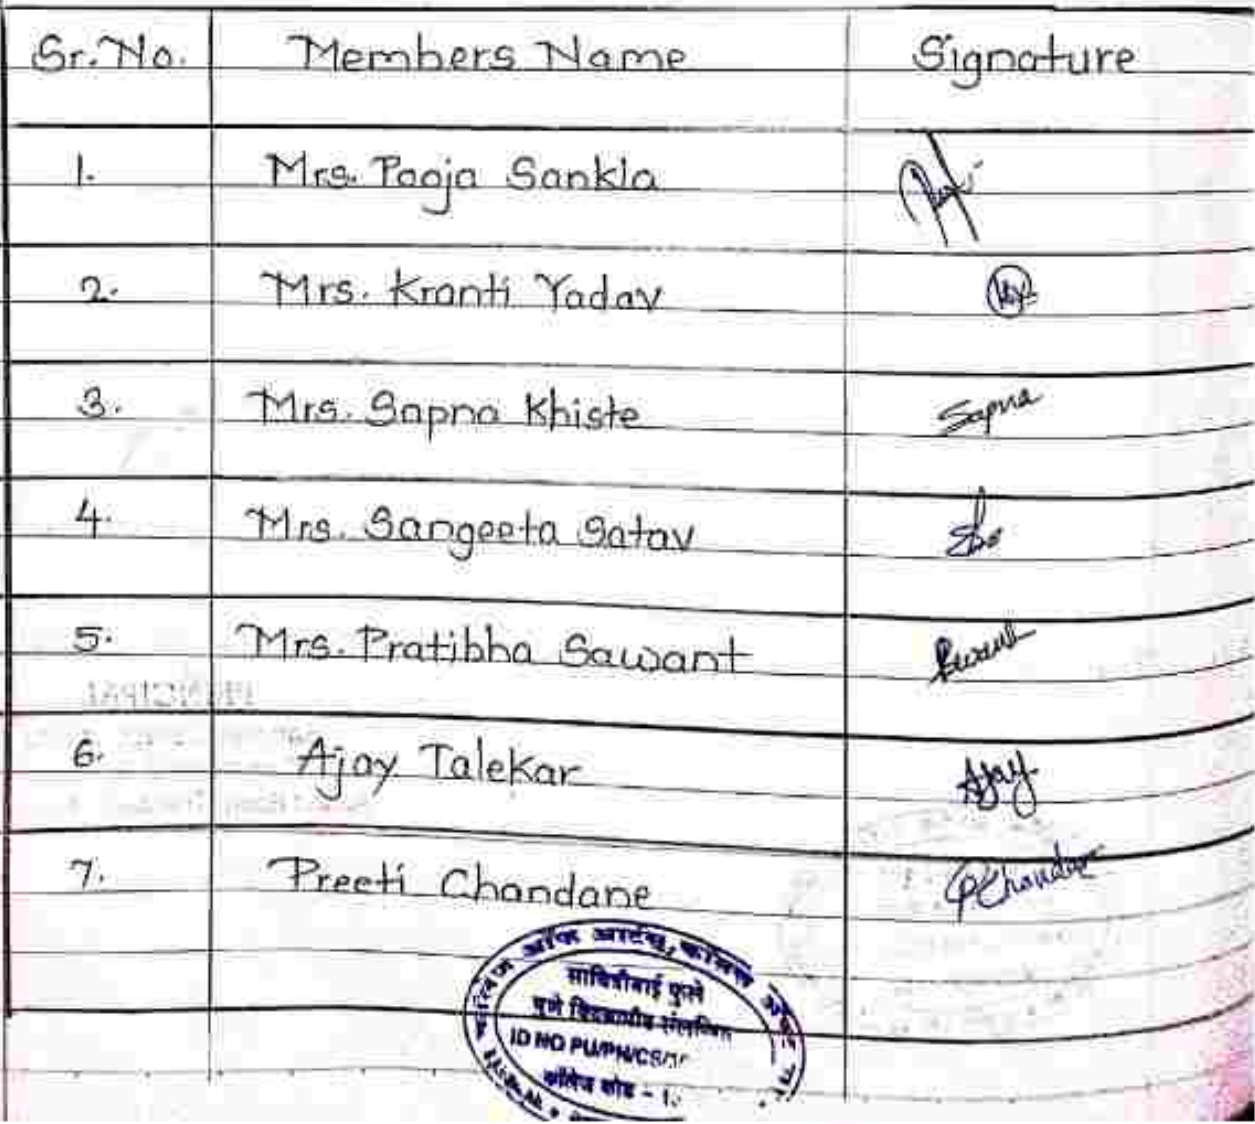 Sr. No. Members Name Signature
1. Mrs. Pooja Sankla
2. Mrs. Kranti Yadav
3. Mrs. Sapna Khiste Sapna
4. Mrs. Sangeeta Satav
5. Mrs. Pratibha Sawant
6. Ajay Talekar Ajay
7. Preeti Chandane
ऑफ आर्टस्, कॉमर्स
सावित्रीबाई फुले
पुणे विद्यापीठ संलग्नित
ID NO PU/PN/CS/
कॉलेज कोड -